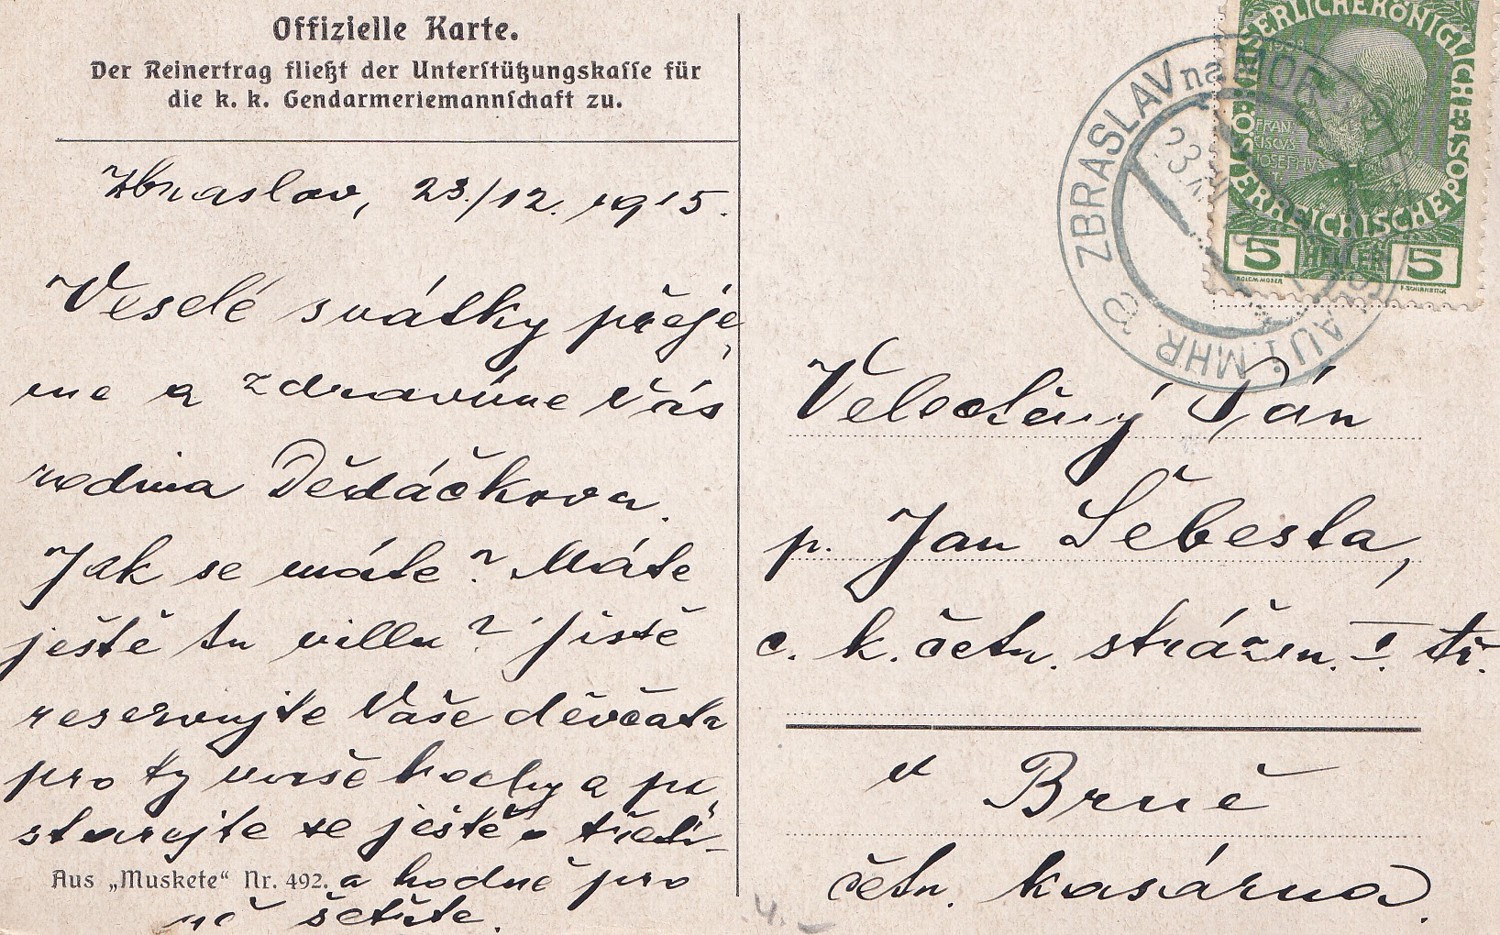 Offizielle Karte.
Der Reinertrag fließt der Unterstützungskasse für
die k. k. Gendarmeriemannschaft zu.
Zbraslav, 23./12. 1915.
Veselé svátky přeje-
me a zdravíme Vás
rodina Dědáčkova.
Jak se máte? Máte
ještě tu villu? Jistě
reservujte Vaše děvčata
pro ty naše hochy a po
starejte se ještě o třetí
Aus „Muskete“ Nr. 492. a hodně pro
ně šetřte.
ZBRASLAV na MOR.
23 XII
AUF MHR.
KAISERLICHE KÖNIGLICHE
ÖSTERREICHISCHE POST
1908
FRAN
CISCVS
IOSEPHVS
I
5 HELLER 5
Velectěný Pán
p. Jan Šebesta,
c. k. četn. strážm. I. tř.
v Brně
četn. kasárna.
4.-